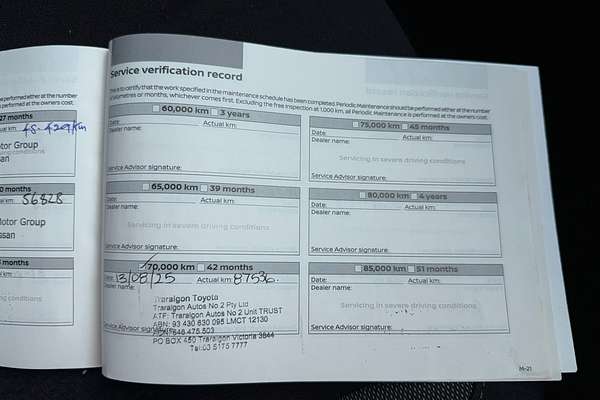 performed either at the number
at the owners cost.
27 months
48.429km
otor Group
ssan
0 months
km: 56828
Motor Group
ssan
months
Service verification record
This is to certify that the work specified in the maintenance schedule has been completed. Periodic Maintenance should be performed either at the number
of kilometres or months, whichever comes first. Excluding the free inspection at 1,000 km, all Periodic Maintenance is performed at the owners cost.
60,000 km 3 years
Date: Actual km:
Dealer name:
Service Advisor signature:
65,000 km 39 months
Date: Actual km:
Dealer name:
Servicing in severe driving conditions
Service Advisor signature:
70,000 km 42 months
Date: 13/08/25 Actual km: 87536
Dealer name:
Traralgon Toyota
Traralgon Autos No 2 Pty Ltd
ATF: Traralgon Autos No 2 Unit TRUST
ABN: 93 430 630 095 LMCT 12130
646 475 503
PO BOX 450 Traralgon Victoria 3844
Tel:03 5175 7777
Service Advisor signature:
75,000 km 45 months
Date: Actual km:
Dealer name:
Servicing in severe driving conditions
Service Advisor signature:
80,000 km 4 years
Date: Actual km:
Dealer name:
Service Advisor signature:
85,000 km 51 months
Date: Actual km:
Dealer name:
Servicing in severe driving conditions
Service Advisor signature:
M-21